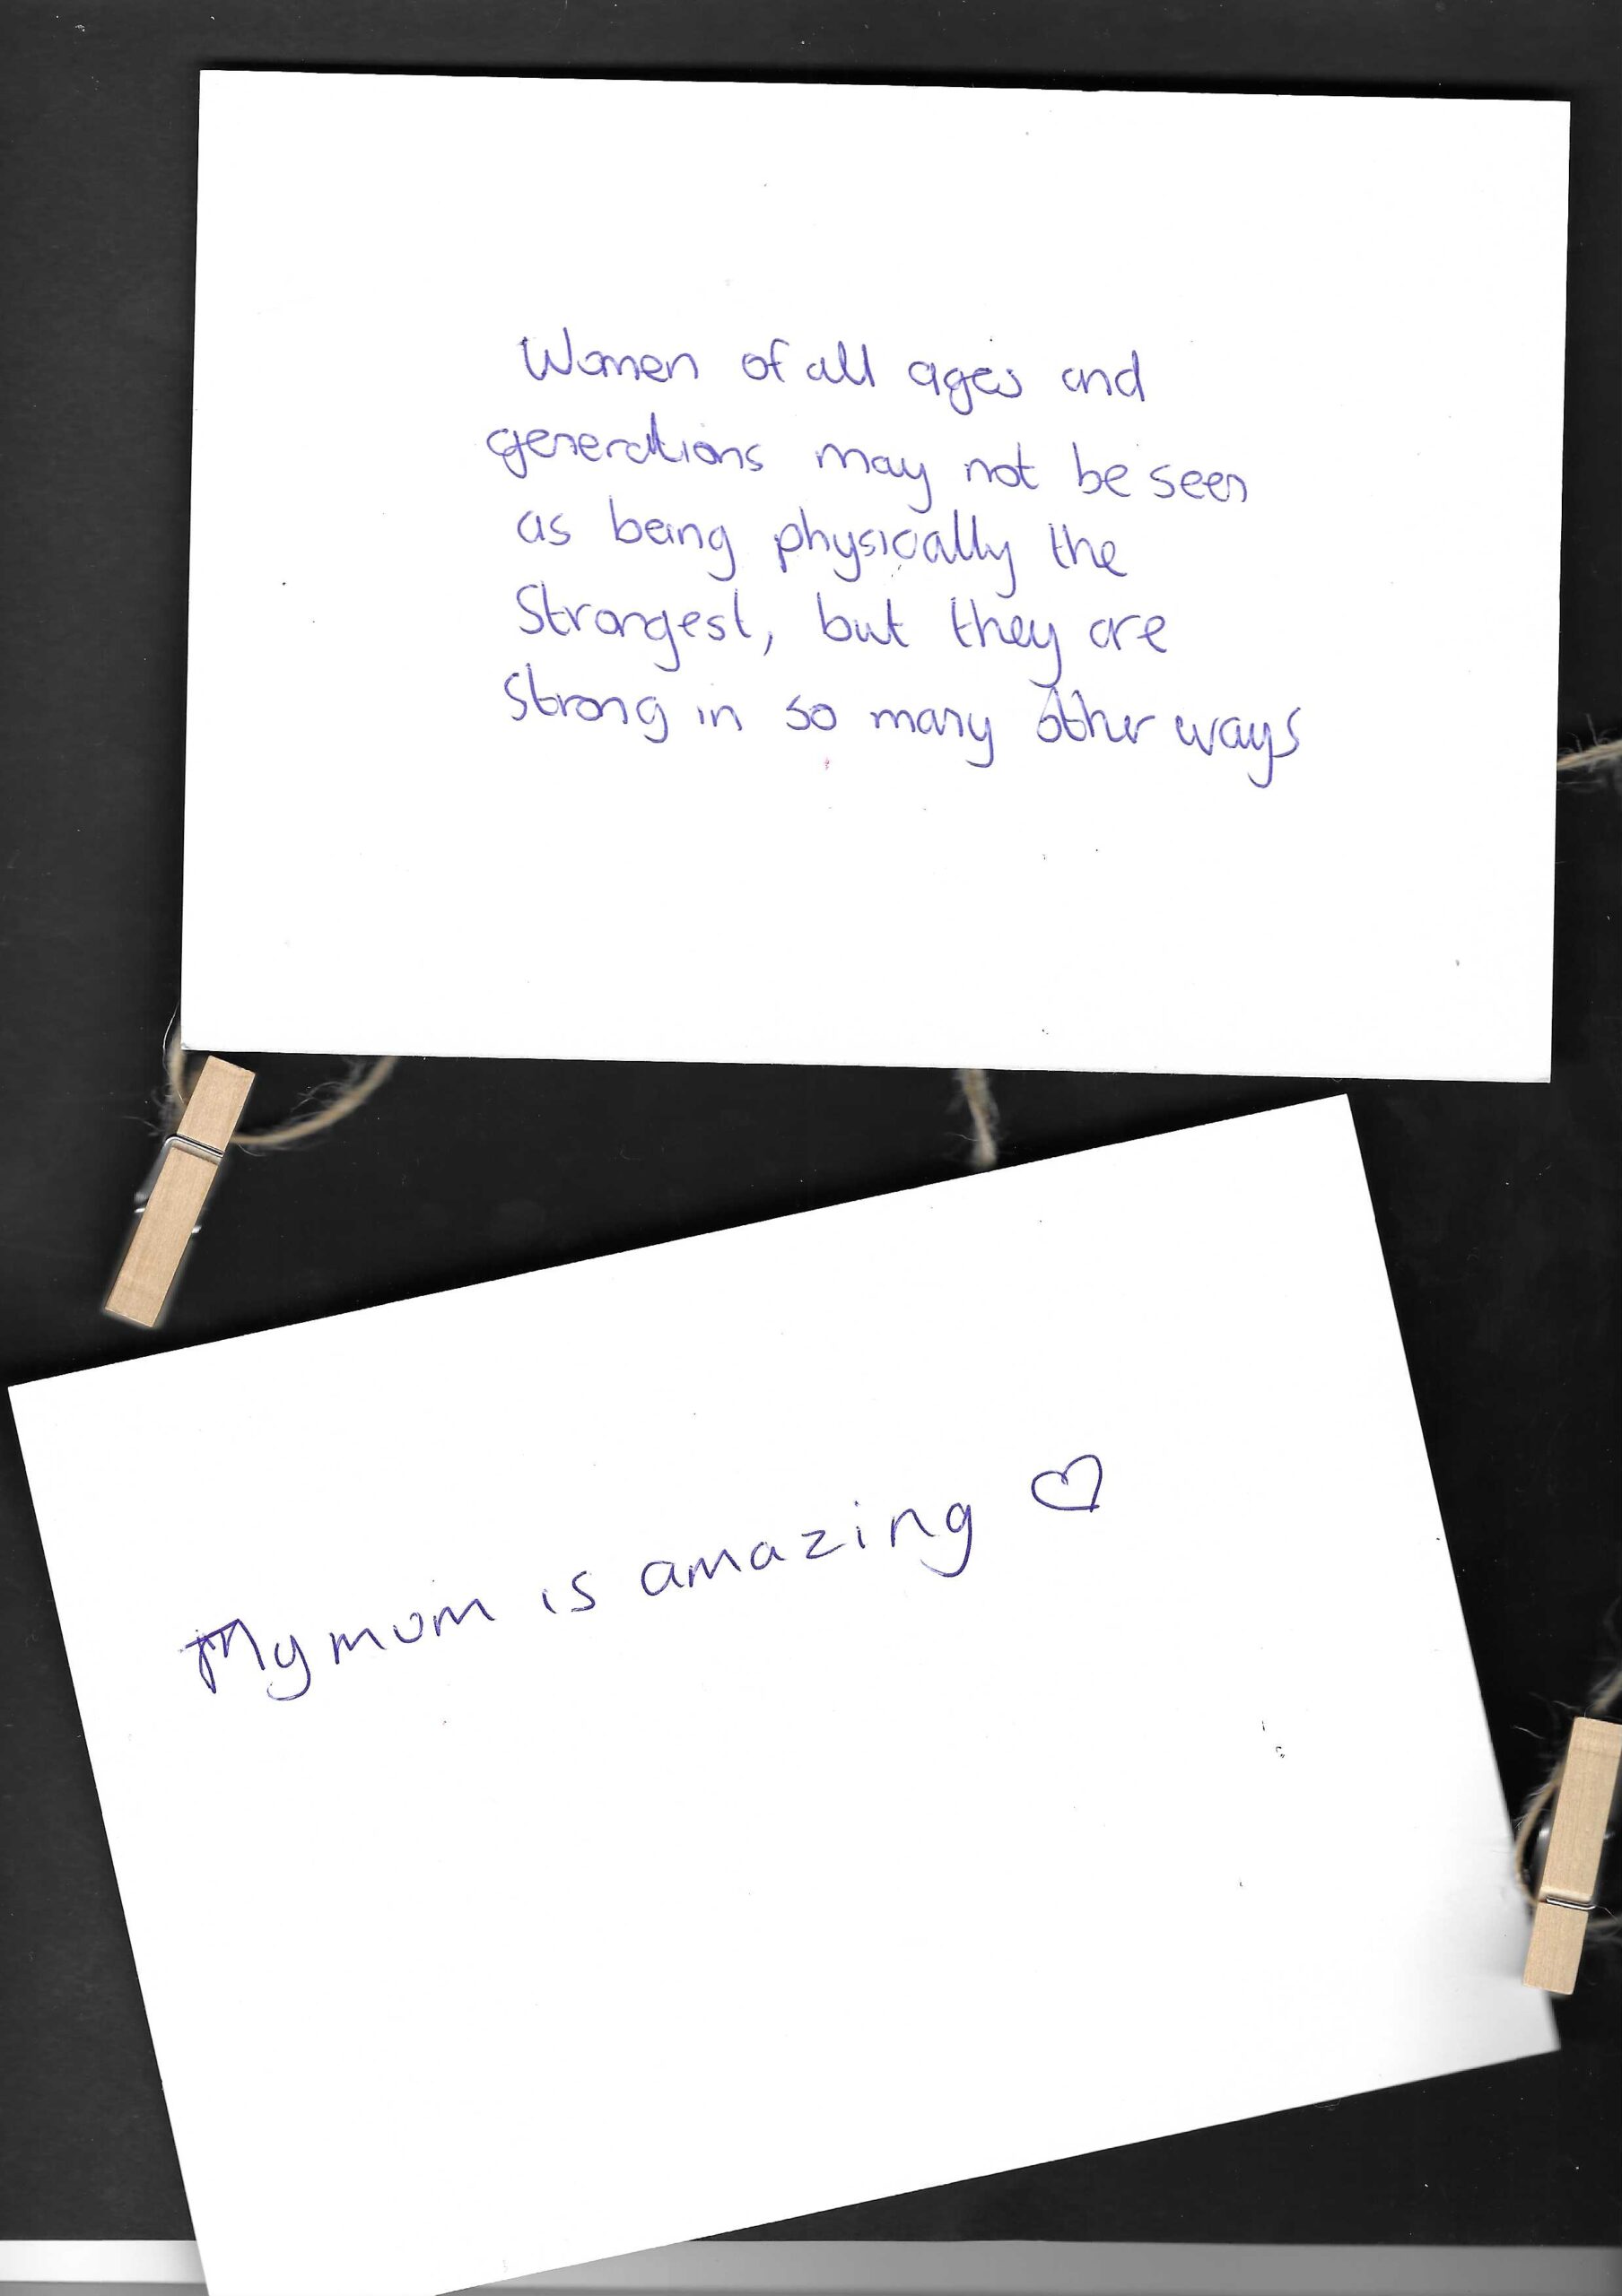 Women of all ages and
generations may not be seen
as being physically the
Strongest, but they are
Strong in so many other ways
My mum is amazing ♡